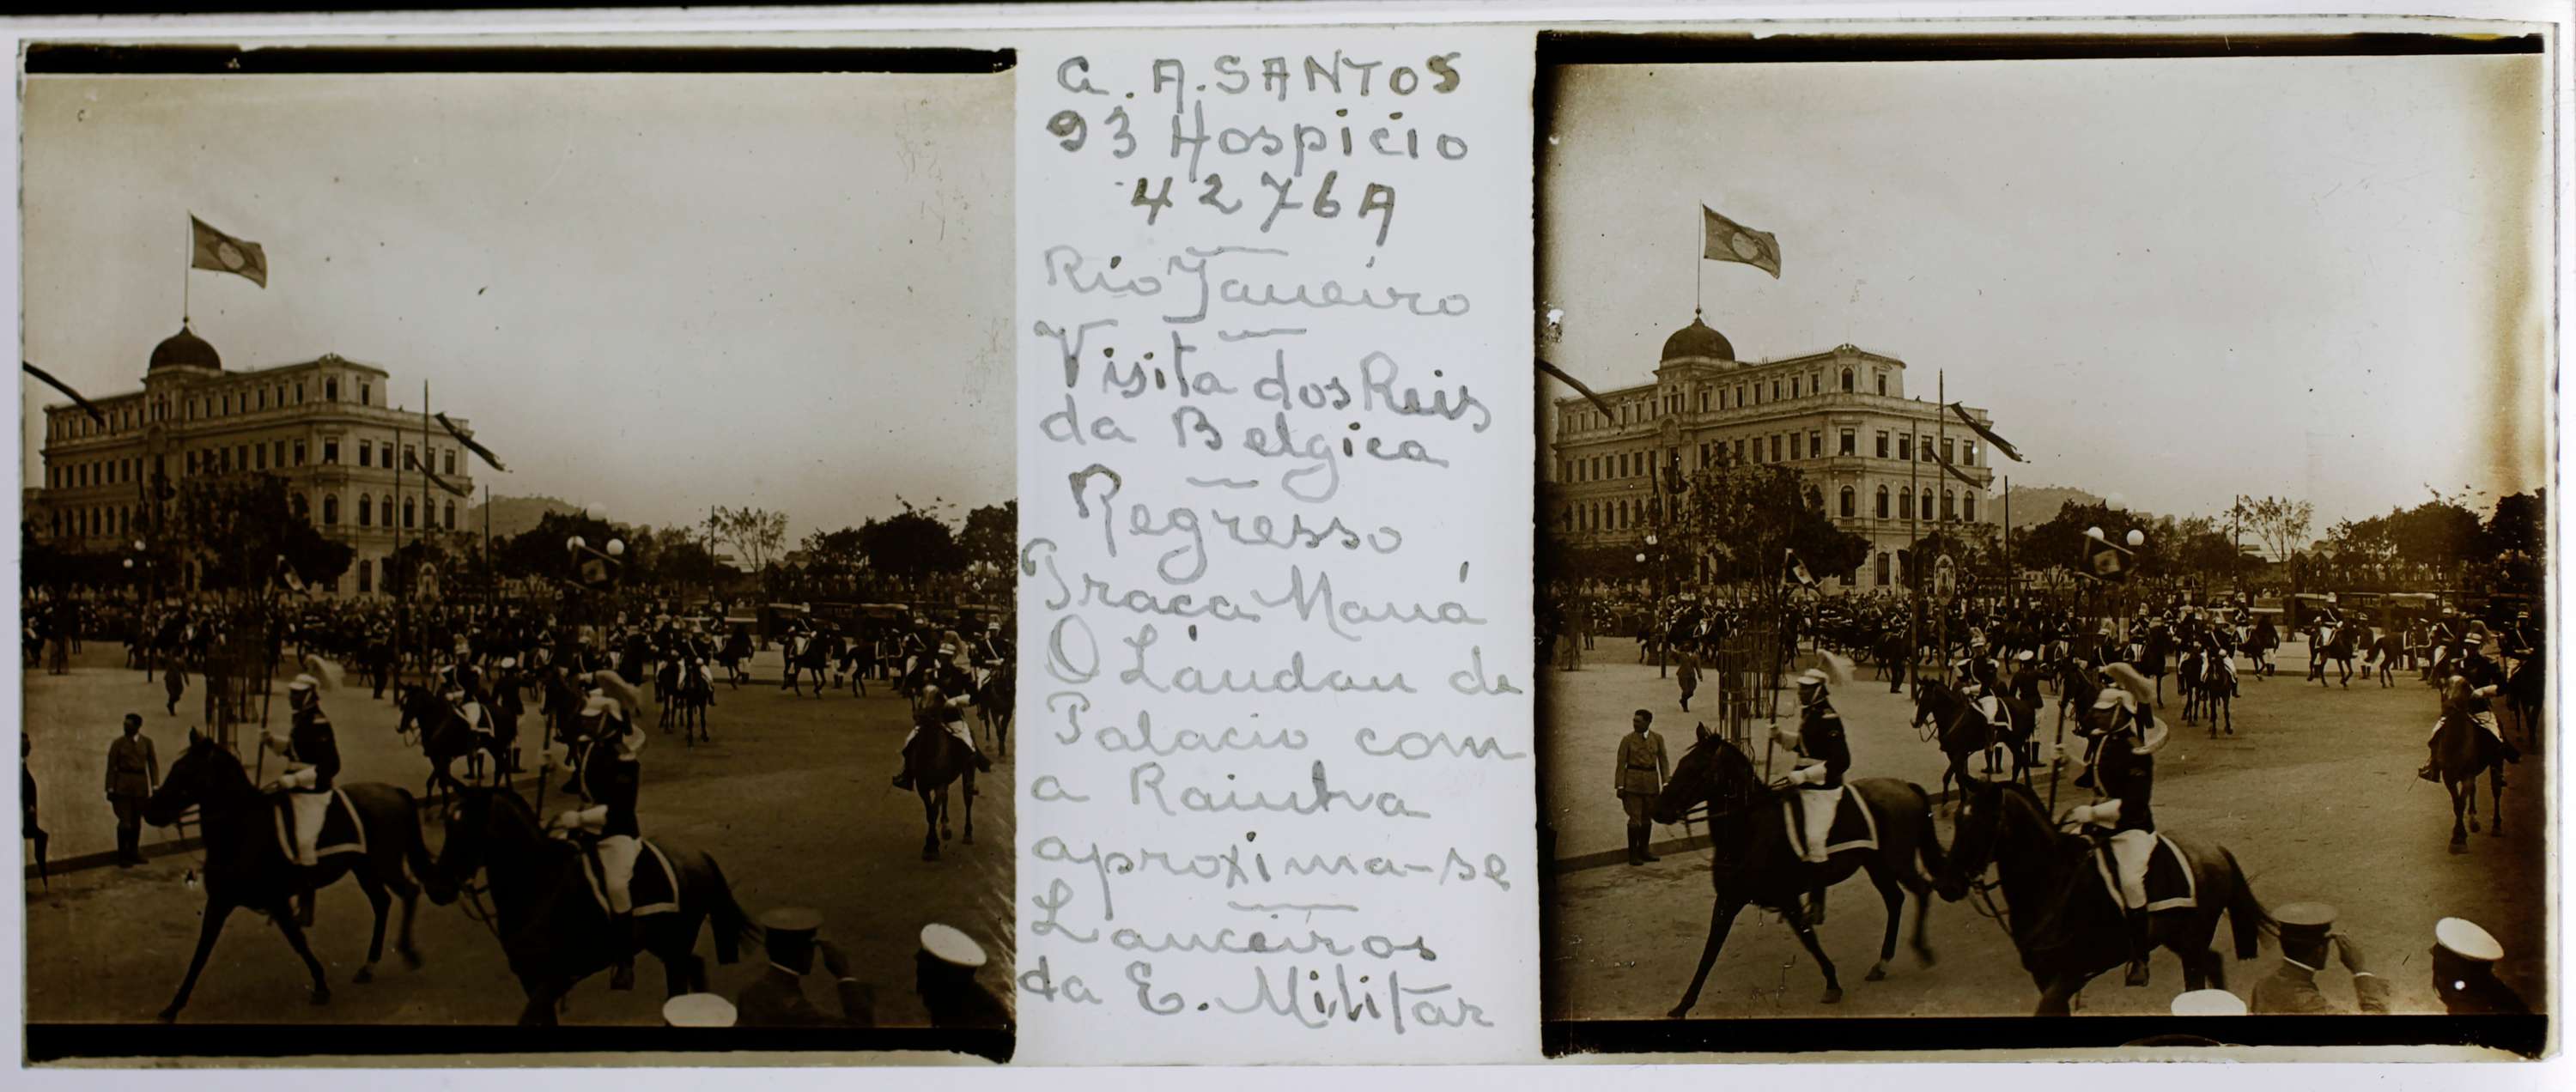 G. A. SANTOS
93 Hospicio
4276A
Rio Janeiro
Visita dos Reis
da Belgica
Regresso
Praca Mauá
O Landau de
Palacio com
a Rainha
aproxima-se
Lanceiros
da E. Militar